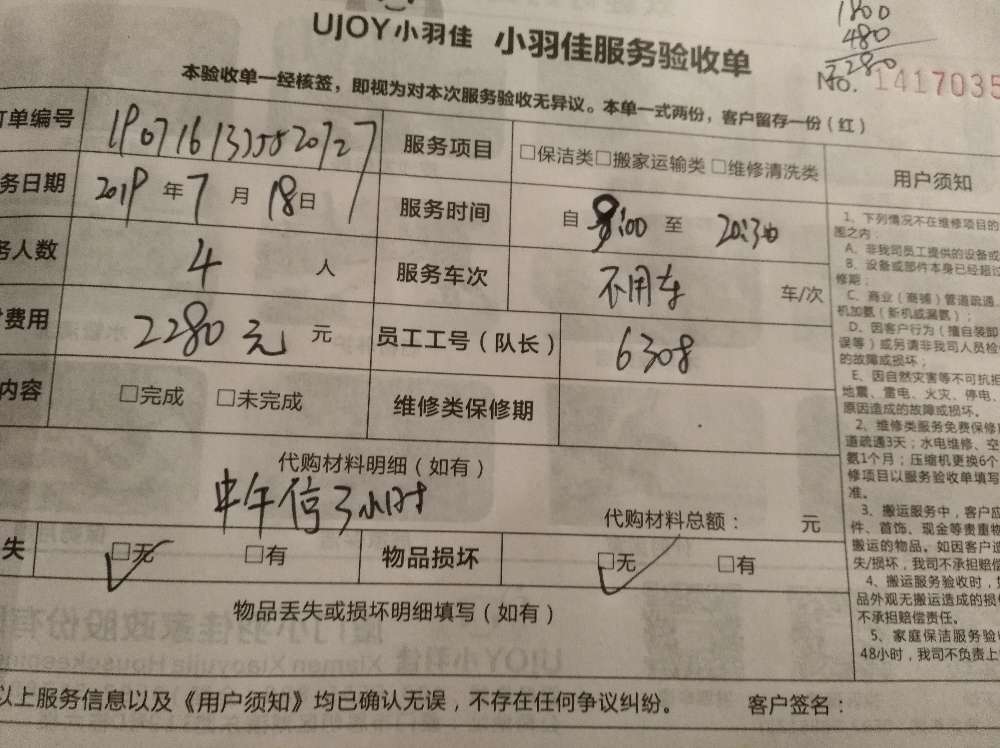 1800
480
2280
UJOY小羽佳 小羽佳服务验收单
No. 1417035
本验收单一经核签，即视为对本次服务验收无异议。本单一式两份，客户留存一份（红）
订单编号 服务项目 □保洁类□搬家运输类 □维修清洗类
务日期 2019 年 7 月 18 日 服务时间 自 8:00 至 20:30
务人数 4 人 服务车次 不用车 车/次
费用 2280元 元 员工工号（队长） 6308
内容 □完成 □未完成 维修类保修期
代购材料明细（如有）
中午停3小时
代购材料总额： 元
失 □无 □有 物品损坏 □无 □有
物品丢失或损坏明细填写（如有）
以上服务信息以及《用户须知》均已确认无误，不存在任何争议纠纷。 客户签名：
用户须知
1、下列情况不在维修项目的
围之内：
A、非我司员工提供的设备或
B、设备或部件本身已经超过
修期；
C、商业（商铺）管道疏通
机加氨（新机或漏氨）；
D、因客户行为（擅自装卸
误等）或另请非我司人员检
的故障或损坏；
E、因自然灾害等不可抗拒
地震、雷电、火灾、停电、
原因造成的故障或损坏。
2、维修类服务免费保修
道疏通3天；水电维修、空
氨1个月；压缩机更换6个
修项目以服务验收单填写
准。
3、搬运服务中，客户应
件、首饰、现金等贵重物
搬运的物品。如因客户
失/损坏，我司不承担赔偿
4、搬运服务验收时，
品外观无搬运造成的损
不承担赔偿责任。
5、家庭保洁服务验
48小时，我司不负责上